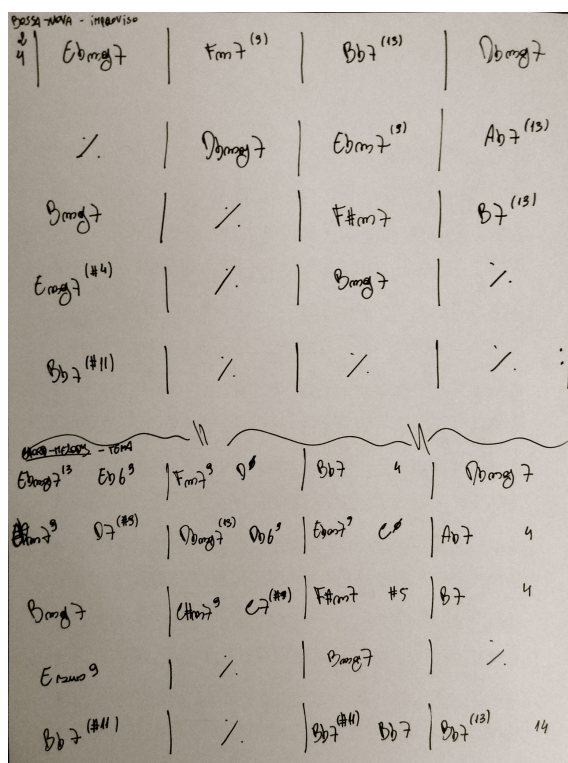 BOSSA-NOVA - iMPROViSO
2/4 | Ebmaj7 | Fm7(9) | Bb7(13) | Dbmaj7
% | Dbmaj7 | Ebm7(9) | Ab7(13)
Bmaj7 | % | F#m7 | B7(13)
Emaj7(#4) | % | Bmaj7 | %
Bb7(#11) | % | % | % :
- TEMA
Ebmaj7 13 Eb6 9 | Fm7 9 Dø | Bb7 4 | Dbmaj7
m7 9 D7(#9) | Dbmaj7(13) Db6 9 | Ebm7 9 Cø | Ab7 4
Bmaj7 | C#m7 9 C7(#9) | F#m7 #5 | B7 4
Esus9 | % | Bmaj7 | %
Bb7(#11) | % | Bb7(#11) Bb7 | Bb7(13) 14